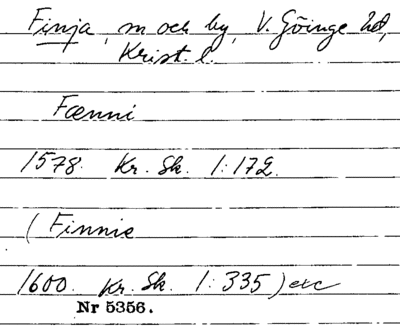 Finja, sn och by, V. Göinge hd,
Krist. l.
Fænni
1578. Kr. Sk. 1:172.
(Finnie
1600. Kr. Sk. 1:335) etc
Nr 5356.